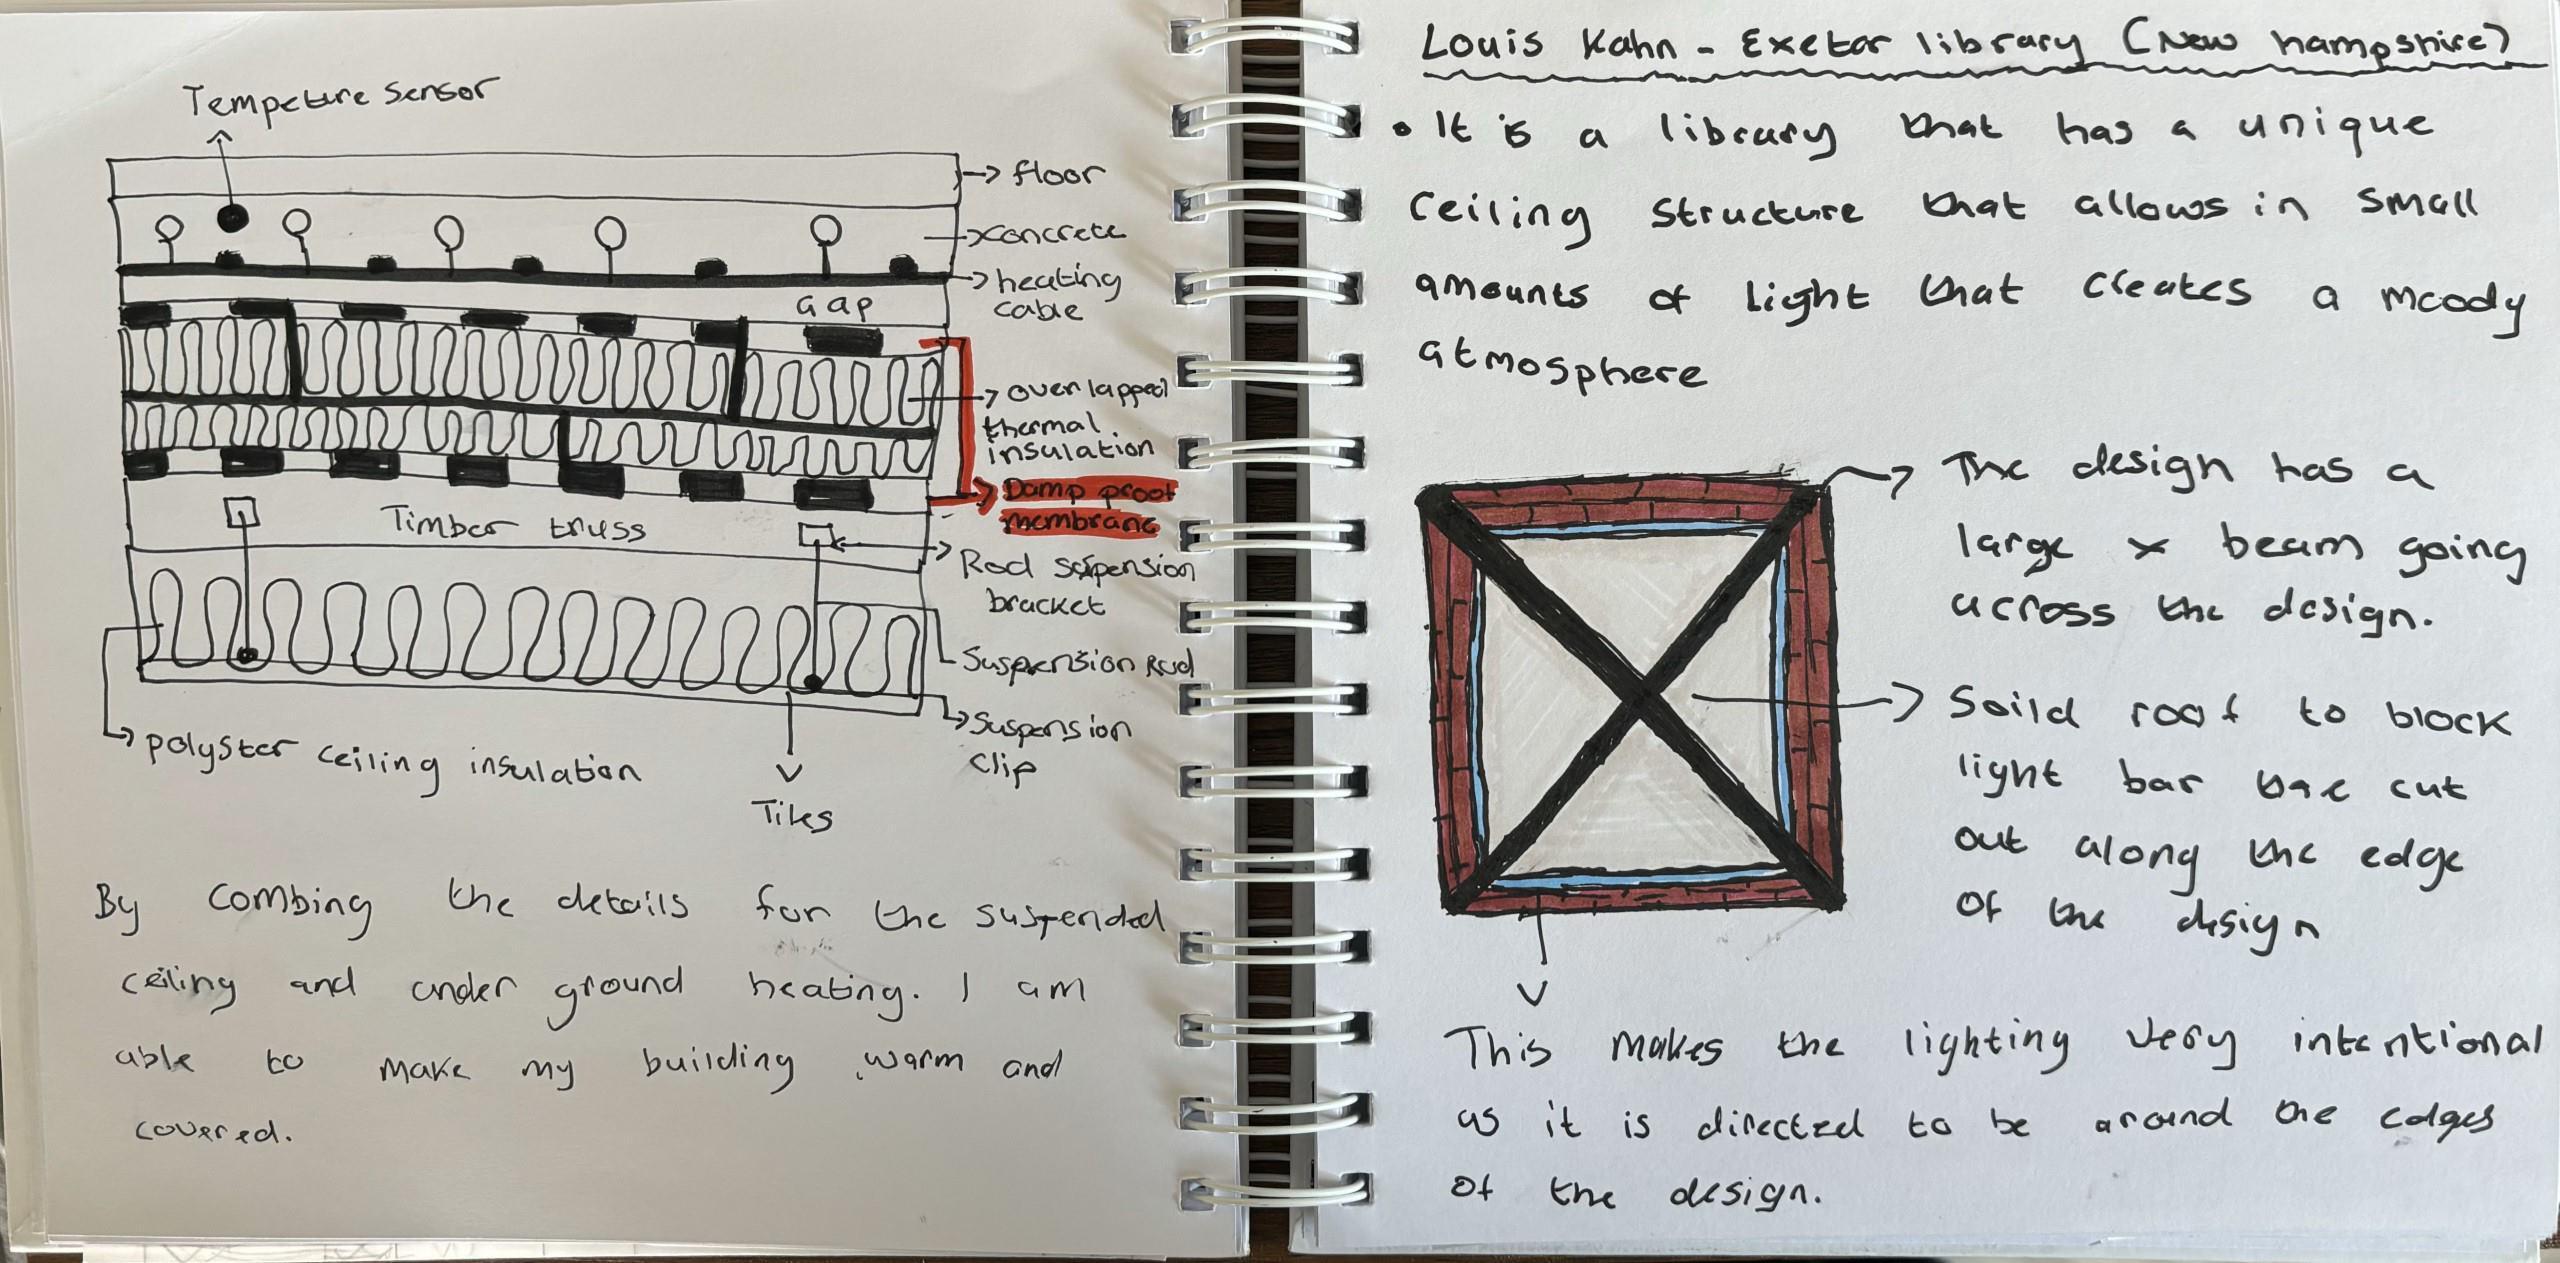 Tempeture sensor
floor
concrete
heating
cable
Gap
overlapped
thermal
insulation
Damp proof
membrane
Timber truss
Rod suspension
bracket
Suspension Rod
Suspension
Clip
polyster ceiling insulation
Tiles
By combing the details for the suspended
ceiling and under ground heating. I am
able to make my building warm and
covered.
Louis Kahn - Exeter library (New hampshire)
• It is a library that has a unique
ceiling structure that allows in small
amounts of light that creates a moody
atmosphere
The design has a
large x beam going
across the design.
Soild roof to block
light bar the cut
out along the edge
of the design
This makes the lighting very intentional
as it is directed to be around the edges
of the design.